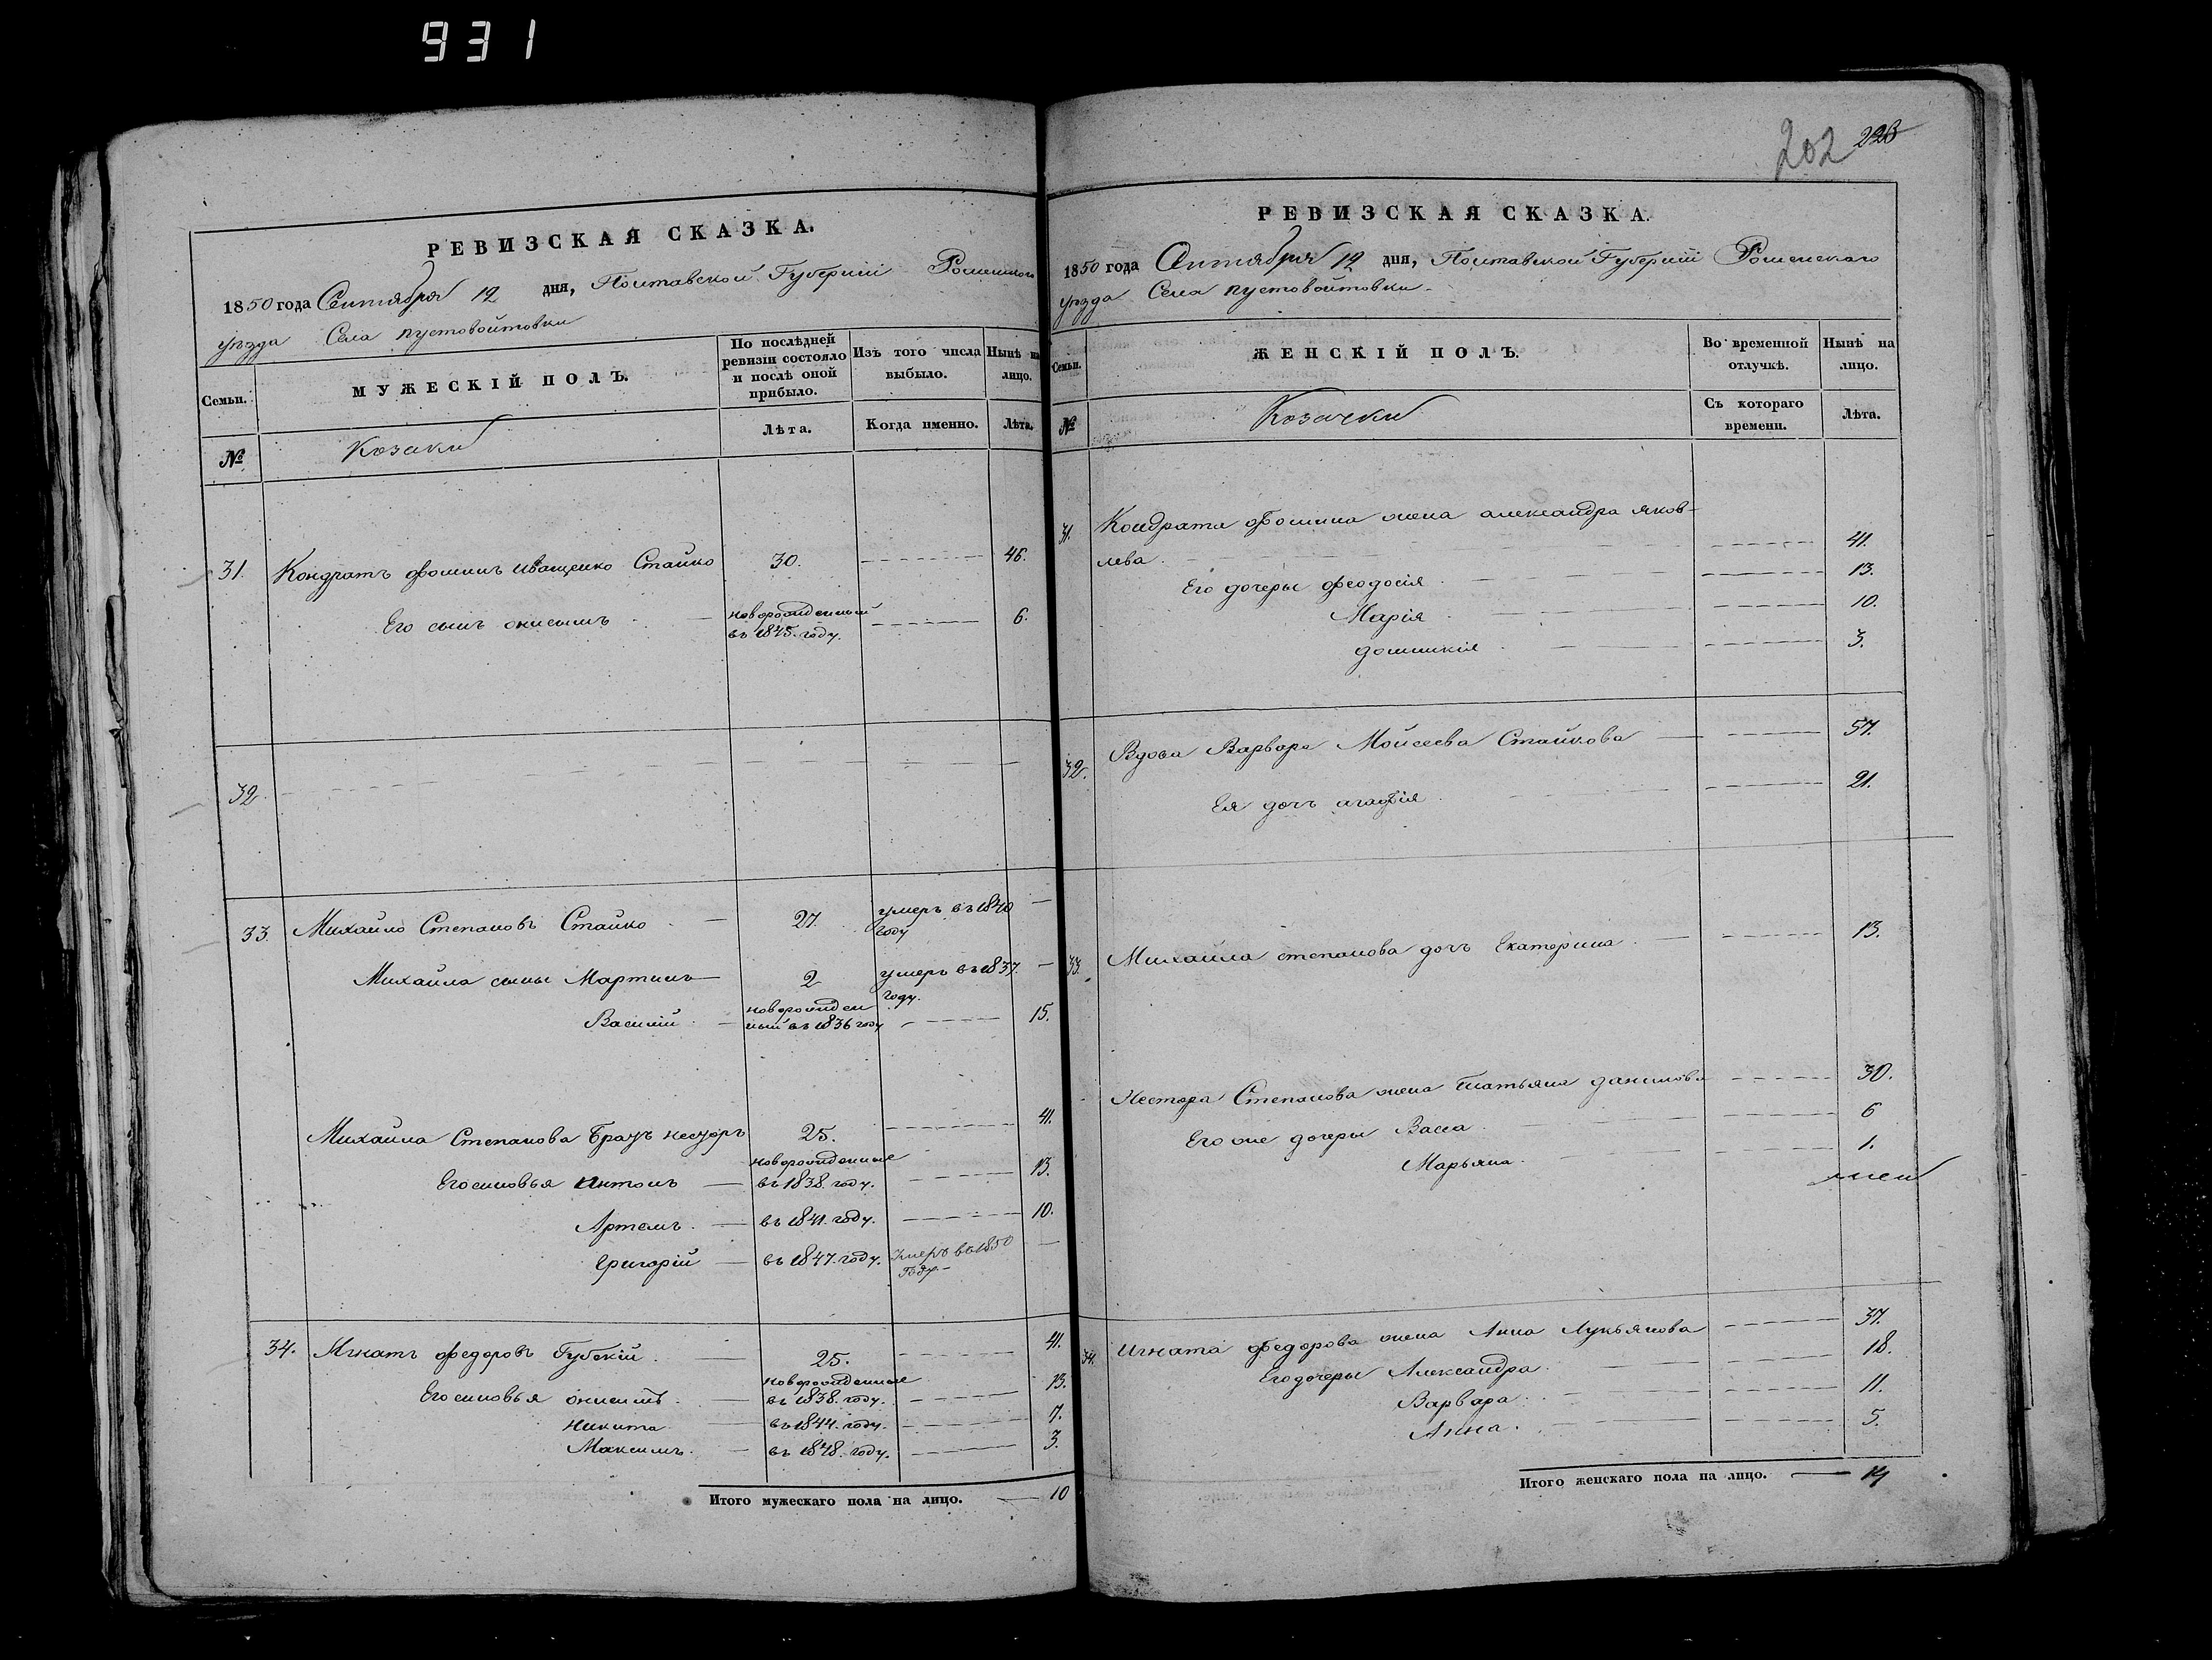 931
202 223
РЕВИЗСКАЯ СКАЗКА.
1850 года Сентября 12 дня, Полтавской Губерніи Роменскаго
уезда Села пустовойтовки
Семьи.
МУЖЕСКІЙ ПОЛЪ.
По послѣдней ревизіи состояло и послѣ оной прибыло.
Изъ того числа выбыло.
Нынѣ на лицо.
№
Козаки
Лѣта.
Когда именно.
Лѣта.
31. Кондратъ фоминъ иващенко Стайко 30. 46.
Его сынъ онисимъ новорожденный въ 1845. году. 6.
32.
33. Михайло Степановъ Стайко 27. умеръ въ 1840 году
Михайла сыны Мартинъ 2 умеръ въ 1837. году.
Василій новорожденный въ 1836 году 15.
Михайла Степанова Братъ несторъ 25. 41.
Его сыновья Антонъ новорожденные въ 1838. году. 13.
Артемъ. въ 1841. году. 10.
Григорій въ 1847. году. Умеръ въ 1850 Году.
34. Игнатъ федоровъ Губскій. 25. 41.
Его сыновья онисимъ. новорожденные въ 1838. году. 13.
никита въ 1844. году. 7.
Максимъ. въ 1848. году. 3.
Итого мужескаго пола на лицо. 10
РЕВИЗСКАЯ СКАЗКА.
1850 года Сентября 12 дня, Полтавской Губерніи Роменскаго
уезда Села пустовойтовки
Семьи.
ЖЕНСКІЙ ПОЛЪ.
Во временной отлучкѣ.
Нынѣ на лицо.
№
Козачки
Съ котораго времени.
Лѣта.
31. Кондрата фомина жена александра яков-
лева 41.
Его дочеры феодосія 13.
Марія 10.
домникія 3.
32. Вдова Варвара Моисеева Стайкова 57.
Ея дочъ агафія 21.
33. Михайла степанова дочъ Екатерина 13.
Нестора Степанова жена татьяна данилова 30.
Его же дочеры Васса 6
Марьяна. 1.
34. Игната федорова жена Анна Лукьянова 37.
Его дочеры Александра. 18.
Варвара 11.
Анна. 5.
Итого женскаго пола на лицо. 14